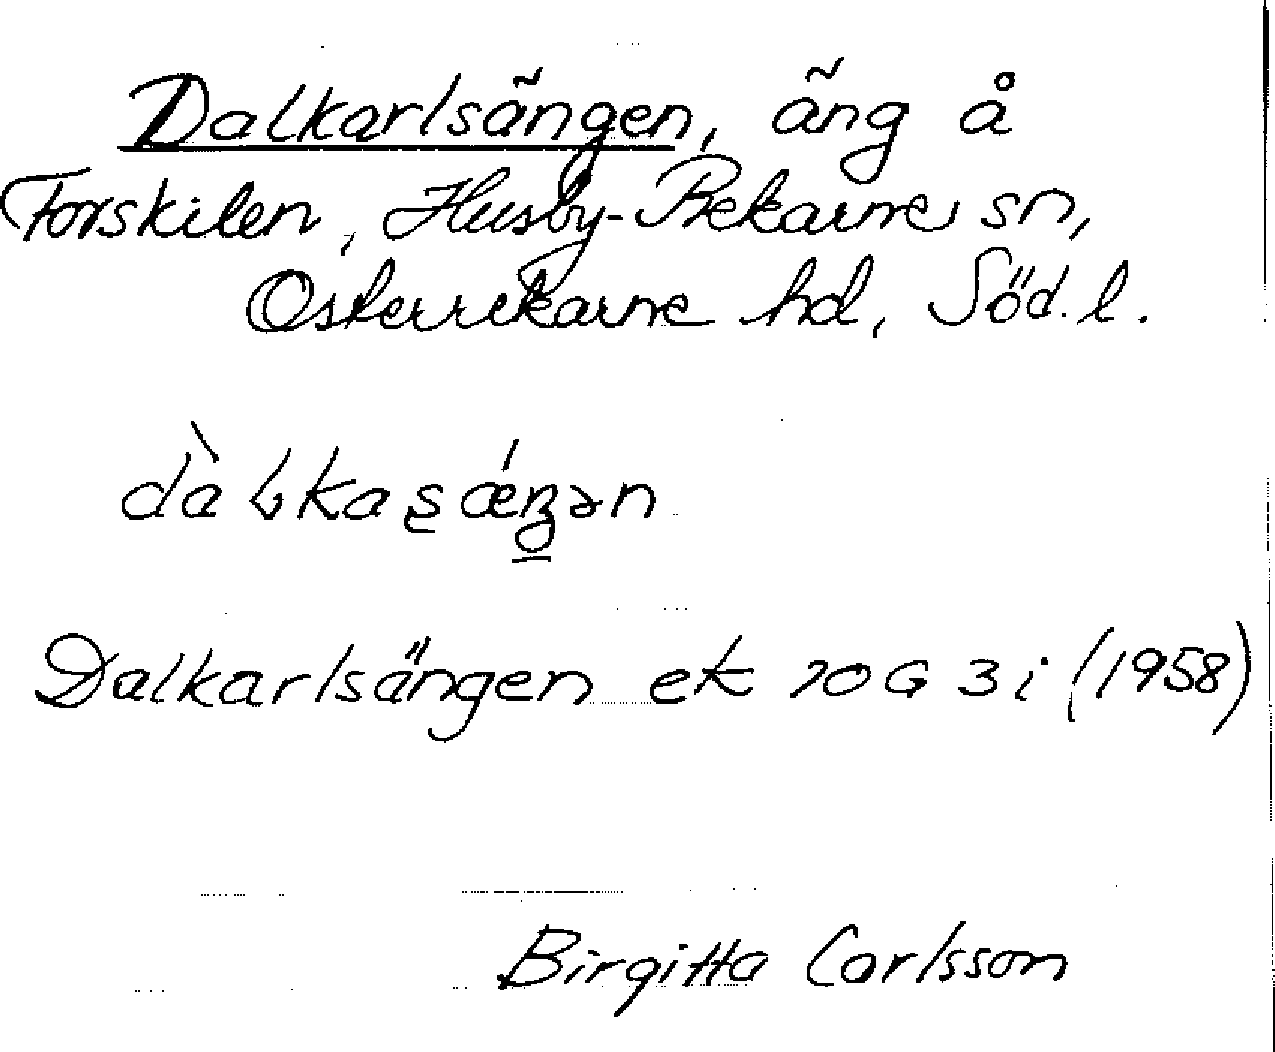 Dalkarlsängen, äng å
Forskilen, Husby-Rekarne sn,
Österrekarne hd, Söd. l.
Dalkarlsängen ek 10G 3i (1958)
Birgitta Carlsson